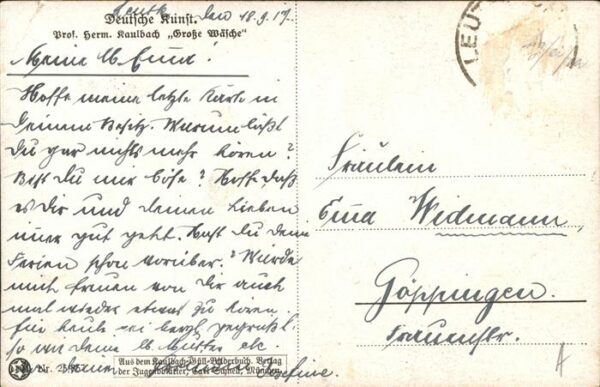 Deutsche Kunst.
Leutk. den 18.9.17.
Prof. Herm. Kaulbach „Große Wäsche“
Meine lb Emma!
Hoffe meine letzte Karte in
Deinem Besitz. Warum läßt
Du gar nichts mehr hören?
Bist du mir böse? Hoffe daß
es Dir und deinen Lieben
imer gut geht. Hast du deine
Ferien schon vorüber? Würde
mich freuen von Dir auch
mal wieder etwas zu hören.
Für heute sei herzl. gegrüßt
so wie deine lb Mutter etc.
Josefine.
Nr.
Aus dem Kaulbach-Güll-Bilderbuch. Verlag
der Jugendblätter, Carl Schnell, München
LEUT
Fräulein
Emma Widmann,
Göppingen.
Frauenstr.